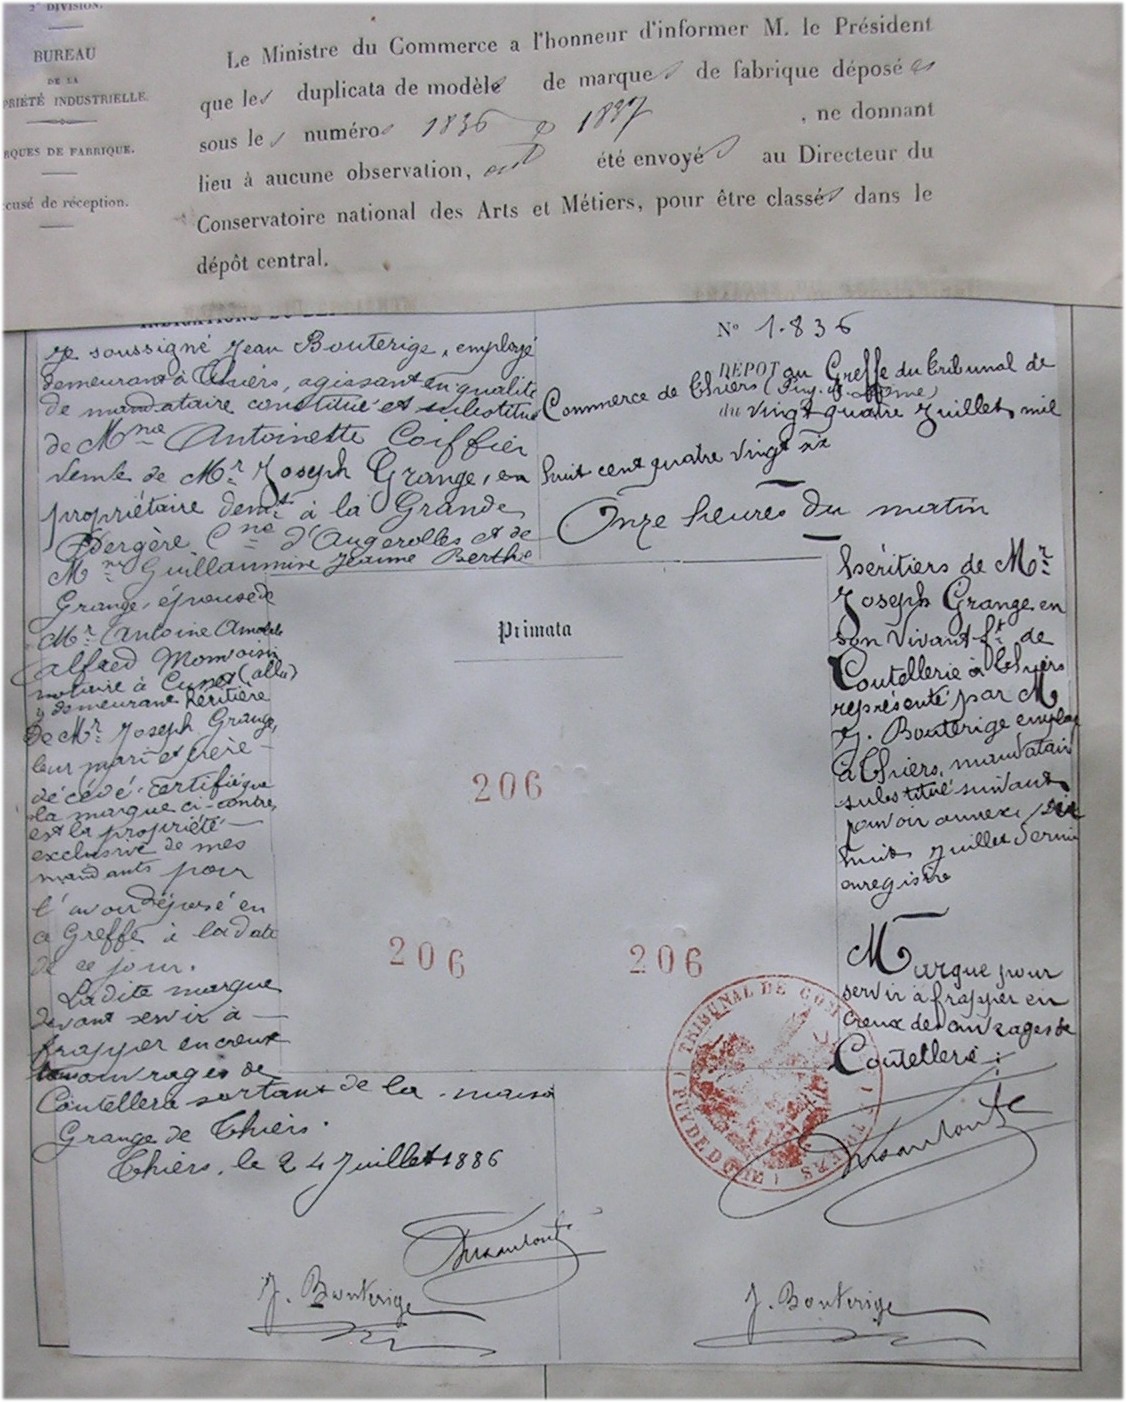 2e DIVISION.
BUREAU
DE LA
PRIÉTÉ INDUSTRIELLE.
RQUES DE FABRIQUE.
cusé de réception.
Le Ministre du Commerce a l'honneur d'informer M. le Président
que les duplicata de modèle de marques de fabrique déposées
sous les numéros 1836 & 1837, ne donnant
lieu à aucune observation, ont été envoyés au Directeur du
Conservatoire national des Arts et Métiers, pour être classés dans le
dépôt central.
Je soussigné Jean Bouterige, employé
demeurant à Thiers, agissant en qualité
de mandataire constitué et substitué
de Mme Antoinette Coiffier
Veuve de Mr Joseph Grange, en
propriétaire demt à la Grande
Bergère Cne d'Augerolles et de
Mme Guillaumine Jeanne Berthe
Grange, épouse de
Mr Antoine Amable
Alfred Monvoisin
notaire à Cunet (allu)
y demeurant héritière
de Mr Joseph Grange,
leur mari et frère
décédé certifie que
la marque ci-contre
est la propriété
exclusive de mes
mandants pour
l'avoir déposé en
ce Greffe à la date
de ce jour.
Ladite marque
devant servir à
frapper en creux
ouvrages de
Coutellerie sortant de la maison
Grange de Thiers.
Thiers, le 24 Juillet 1886
J. Bouterige
No 1.836
DÉPOT au Greffe du tribunal de
Commerce de Thiers (Puy-de-Dôme)
du vingt quatre Juillet mil
huit cent quatre vingt six
Onze heures du matin
héritiers de Mr
Joseph Grange en
son vivant ft de
Coutellerie à Thiers
représenté par M
J. Bouterige employé
à Thiers, mandataire
substitué suivant
pouvoir annexé, dix
huit Juillet dernier
enregistré
Marque pour
servir à frapper en
creux des ouvrages de
Coutellerie.
Primata
206
206
206
TRIBUNAL DE COM
THIERS
(PUY DE DOME)
J. Bouterige